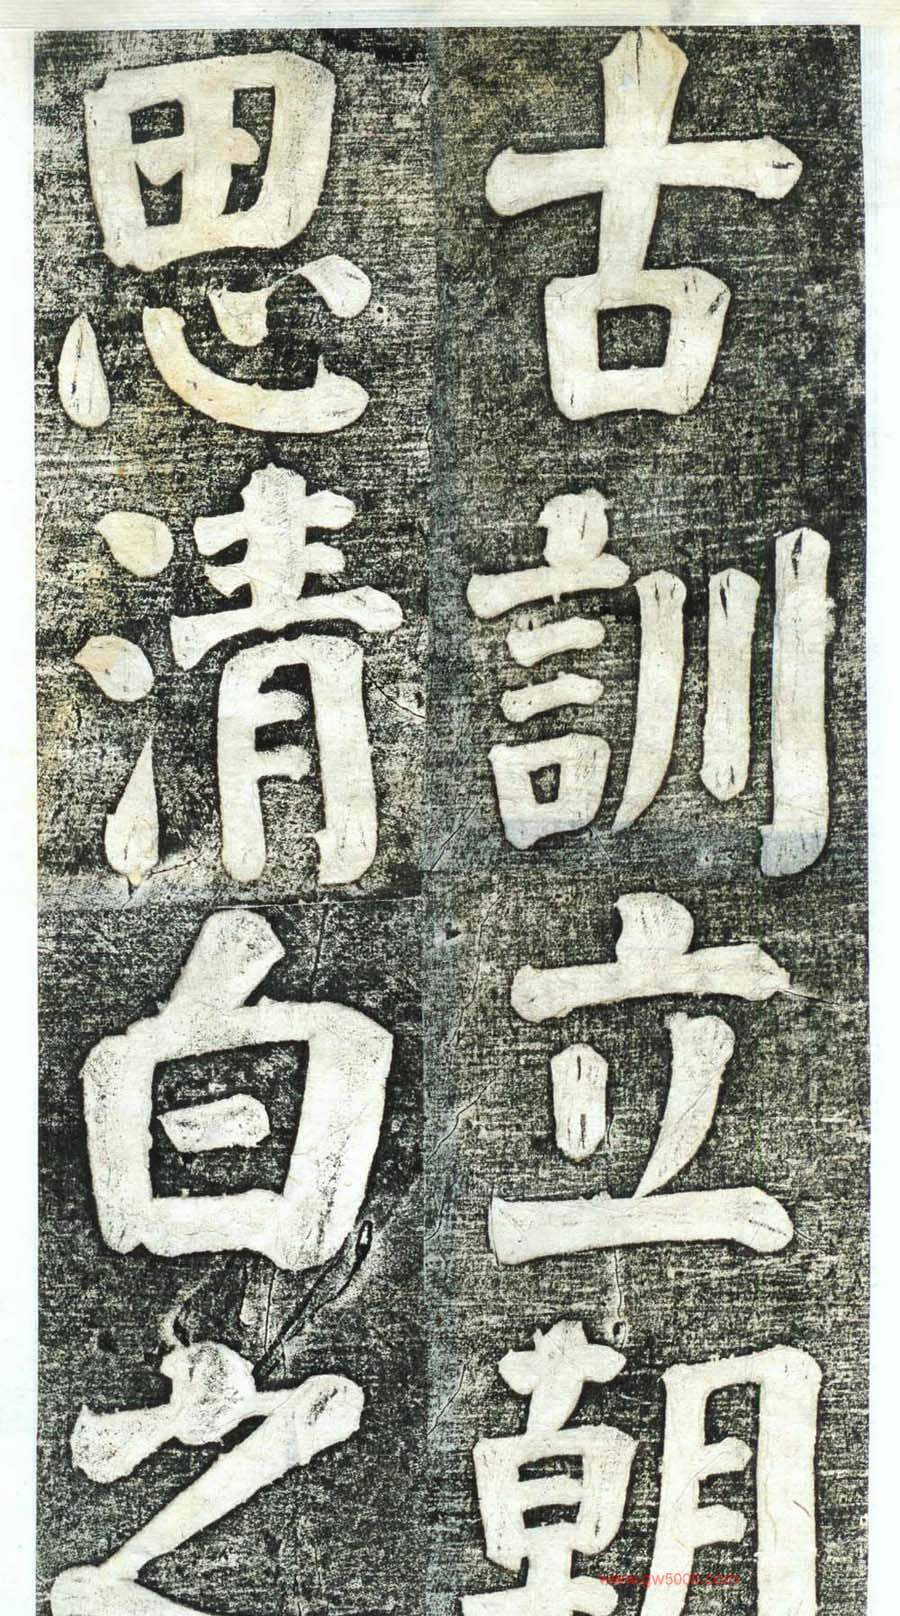 古訓立朝
思清白之
www.gw5000.com